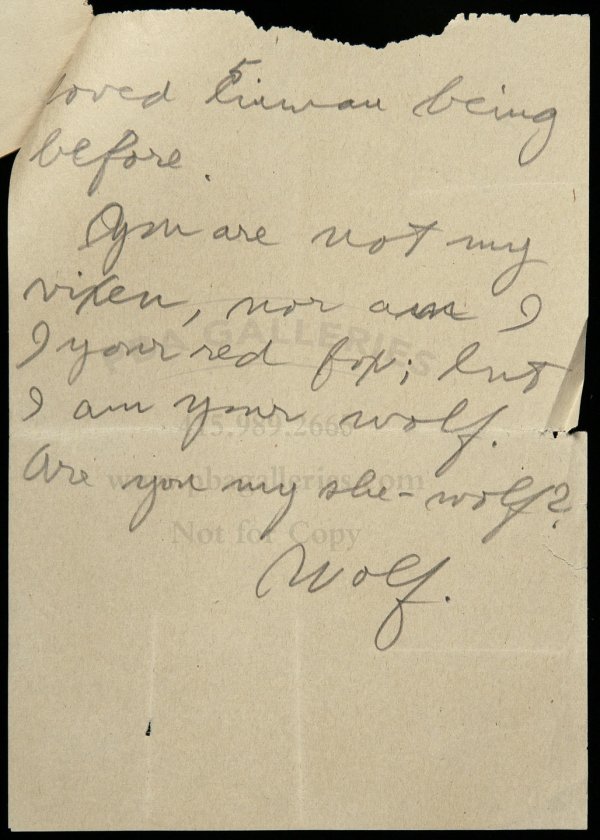 5
loved human being
before.
You are not my
vixen, nor am I
I your red fox; but
I am your wolf.
Are you my she-wolf?
Wolf.
PBA GALLERIES
415.989.2666
www.pbagalleries.com
Not for Copy